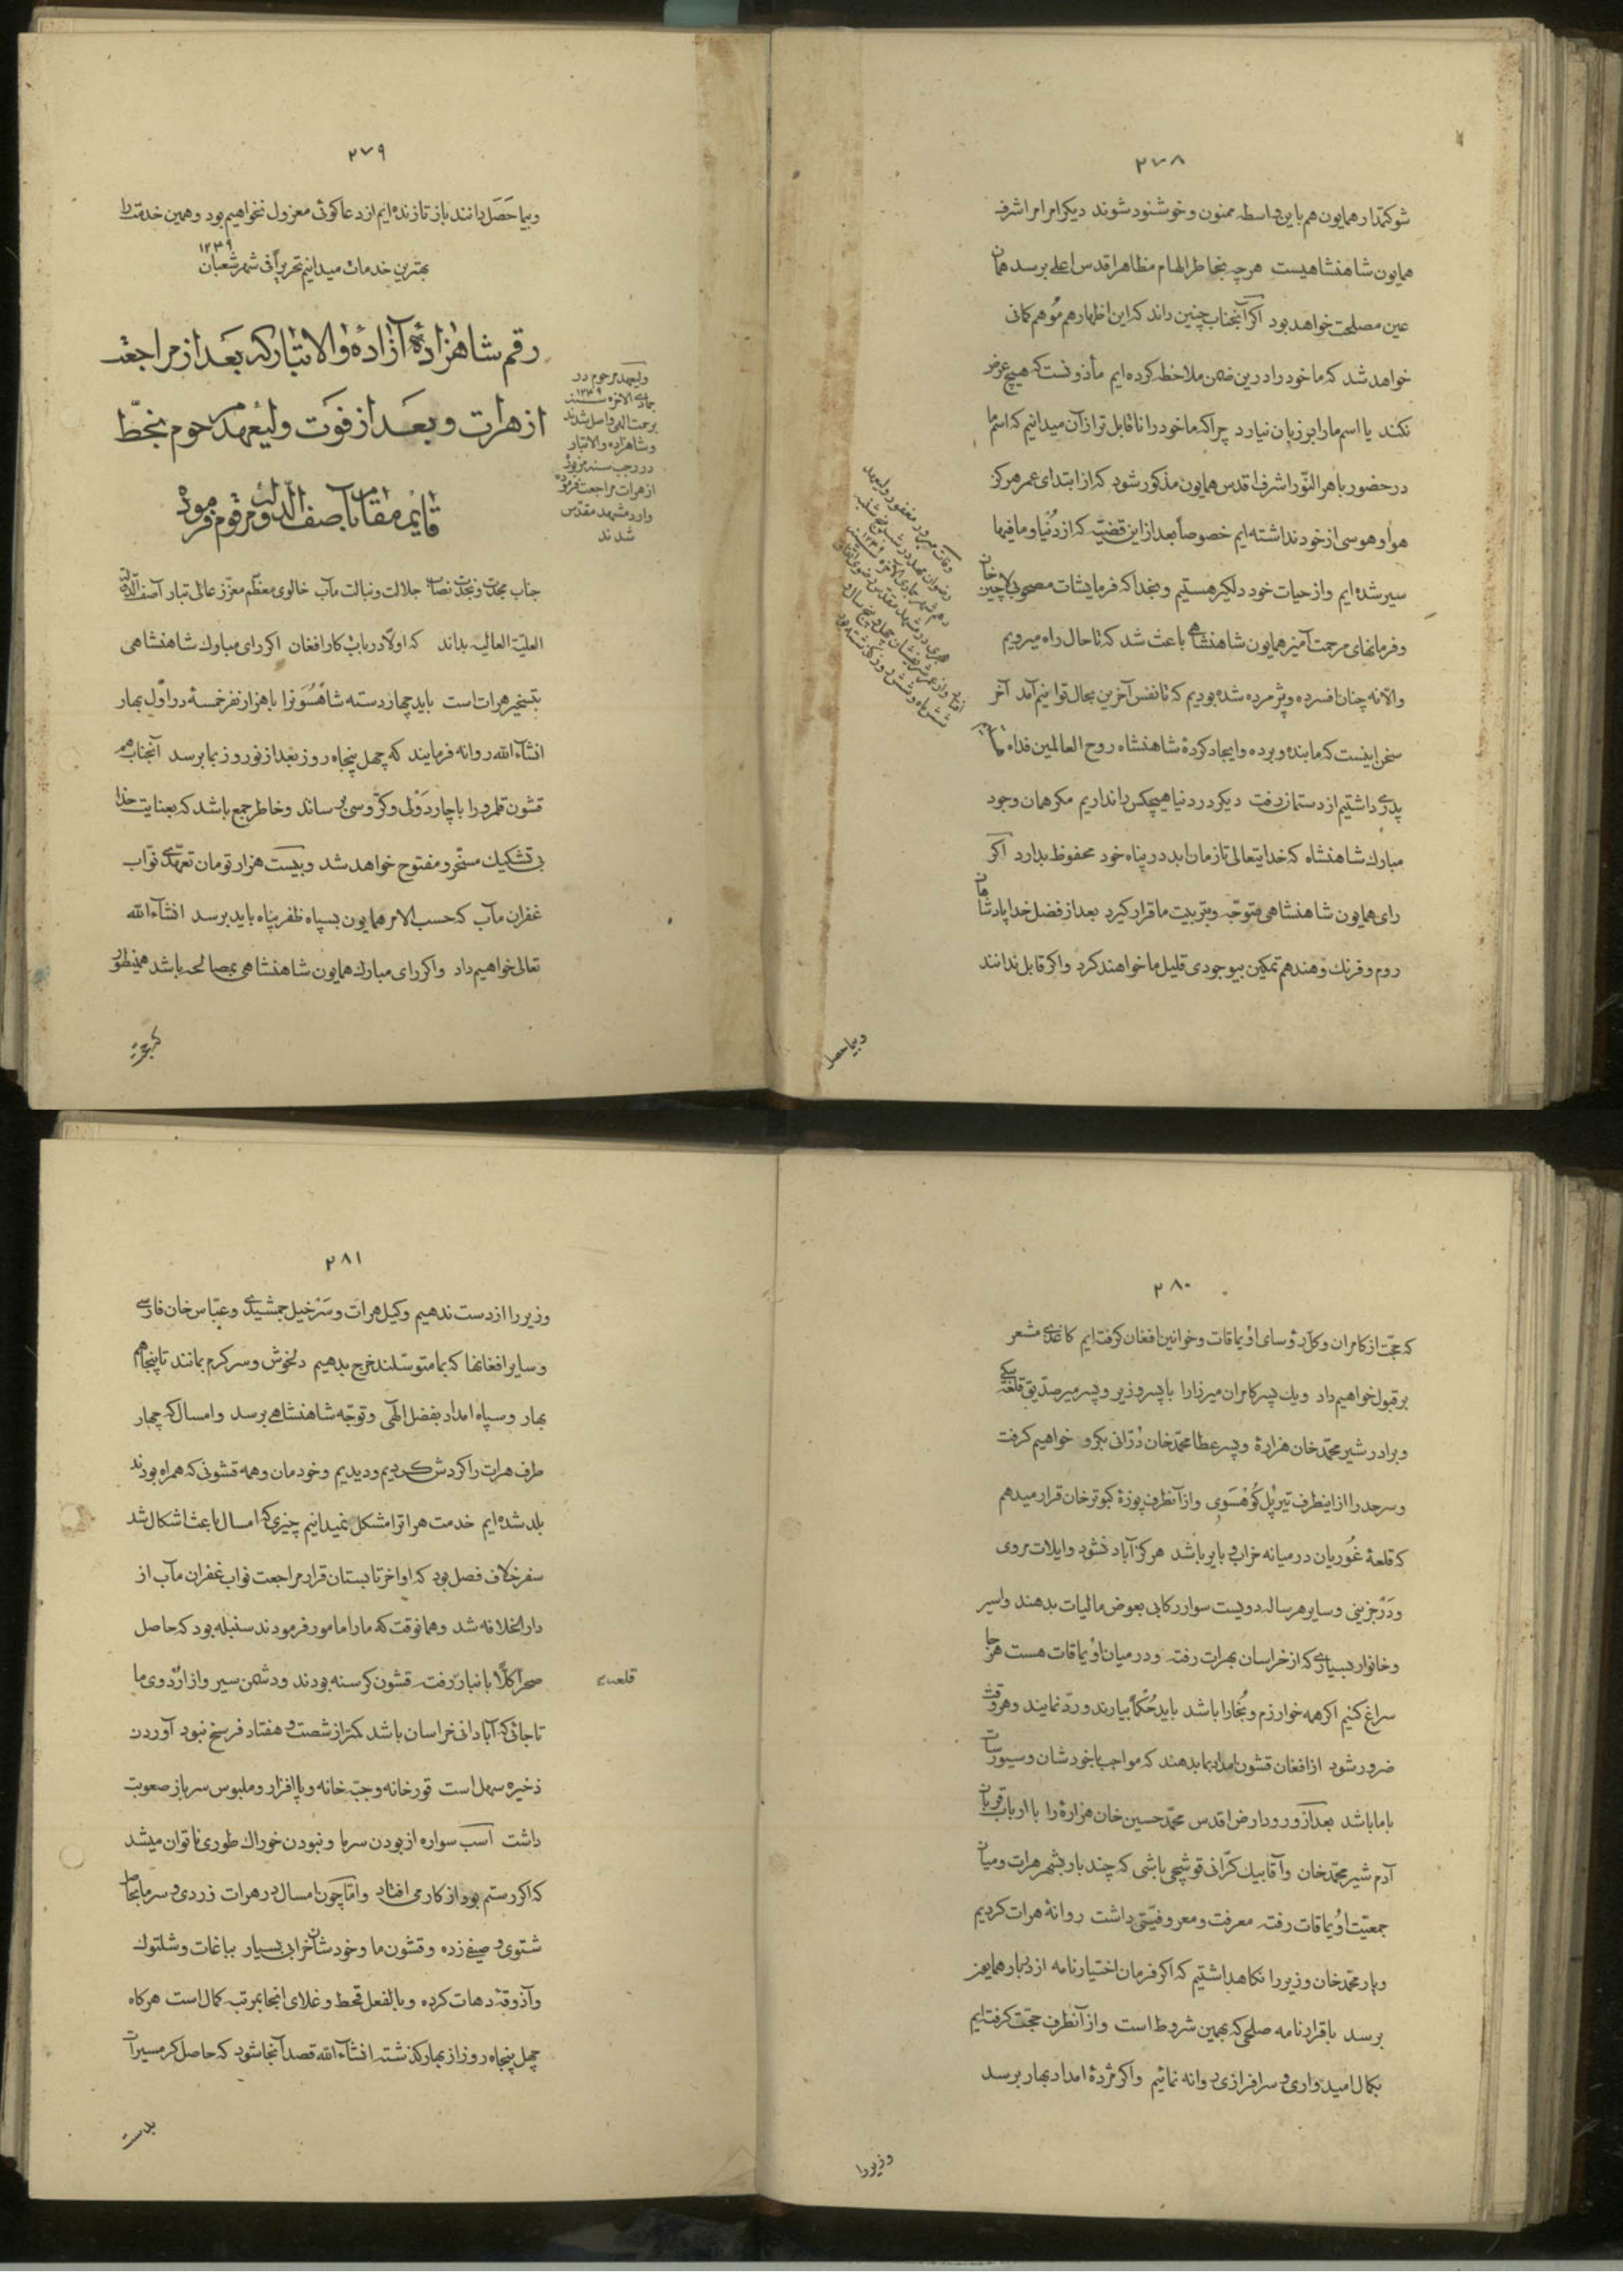 ٢٧٨
شوکتمدار همایون هم باین واسطه ممنون و خوشنود شوند دیکر امر امر اشرف
همایون شاهنشاهیست هرچه بخاطر الهام مظاهر اقدس اعلی برسد همان
عین مصلحت خواهد بود اکر آنجناب چنین داند که این اظهار هم موهم کمانی
خواهد شد که ما خود را درین ضمن ملاحظه کرده ایم مأذونست که هیچ عرض
نکند یا اسم ما را بر زبان نیارد چرا که ما خود را ناقابل تر از آن میدانیم که اسم ما
در حضور باهر النّور اشرف اقدس همایون مذکور شود که از ابتدای عمر هرکز
هوا و هوسی از خود نداشته ایم خصوصاً بعد از این قضیّه که از دُنیا و مافیها
سیر شده ایم و از حیات خود دلکیر هستیم و بخدا که فرمایشات مصحوب لاچین خان
و فرمانهای مرحمت آمیز همایون شاهنشاهی باعث شد که تا حال راه میرویم
والا نه چنان افسرده و پژمرده شده بودیم که تا نفس آخرین بحال توانیم آمد آخر
سخن اینست که ما بنده و برده و ایجاد کردهٔ شاهنشاه روح العالمین فداه
پدری داشتیم از دستمان رفت دیکر در دنیا هیچکس را نداریم مکر همان وجود
مبارك شاهنشاه که خدایتعالی تا زمان ابد در پناه خود محفوظ بدارد اکر
رای همایون شاهنشاهی متوجّه و بتربیت ما قرار کیرد بعد از فضل خدا پادشاهان
روم و فرنك و هند هم تمکین بیوجودی قلیل ما خواهند کرد و اکر قابل ندانند
وفات مبرور مغفور ولیعهد
رضوان مهد در شب پنج شنبه
دهم شهر جمادی الاخره سنه ١٢٤٩
هجری در مشهد مقدس رضوی اتفاق
افتاد و از عمر شریفشان چهل و پنج سال و
شش ماه و شش روز گذشته بود
و بیماحصل
٢٧٩
و بیماحَصَل دانند باز تا زنده ایم از دعا کوئی معزول نخواهیم بود و همین خدمت را
بهترین خدمات میدانیم تحریراً فی شهر شعبان ١٢٤٩
رقم شاهزادهٔ آزادهٔ والاتبار که بعد از مراجعت
از هرات و بعد از فوت ولیعهد مرحوم بخطّ
قایم مقام بآصف الدّوله مرقوم فرموده
ولیعهد مرحوم در
جمادی الاخره سنه ١٢٤٩
برحمت الهی واصل شدند
و شاهزاده والاتبار
در رجب سنه مزبوره
از هرات مراجعت فرموده
وارد مشهد مقدّس
شدند
جناب مجدت و نجدت نصاب جلالت و نبالت مآب خالوی معظّم معزّز عالی تبار آصف الدّوله
العلیّة العالیه بداند که اولاً در باب کار افغان اکر رای مبارك شاهنشاهی
بتسخیر هرات است باید چهار دسته شاهسُوَنرا با هزار نفر خمسهٔ در اوّل بهار
انشاءالله روانه فرمایند که چهل پنجاه روز بعد از نوروز بما برسد آنجناب هم
قشون قلمرو را با چاردَوْلی و کرّوسی برساند و خاطر جمع باشد که بعنایت خدا
بی تشکیك مسخّر و مفتوح خواهد شد و بیست هزار تومان تعهّدی نوّاب
غفران مآب که حسب الامر همایون بسپاه ظفر پناه باید برسد انشاءالله
تعالی خواهیم داد و اکر رای مبارك همایون شاهنشاهی بمصالحه باشد همینطور
که حجّت
٢٨٠
که حجّت از کامران و کل رؤسای اویماقات و خوانین افغان کرفته ایم کاغذی مشعر
بر قبول خواهیم داد و یك پسر کامران میرزا را با پسر وزیر و پسر میر صدّیق قلعه بیکی
و برادر شیر محمّد خان هزارهٔ و پسر عطا محمّد خان دُرّانی بکرو خواهیم کرفت
و سرحد را از اینطرف تیرپُل کُوهْسَوی و از آنطرف پوزهٔ کبوتر خان قرار میدهم
که قلعهٔ غُوریان در میانه خراب و بایر باشد هرکز آباد نشود و ایلات مروی
و دَرْجزینی و سایر هر ساله دویست سوار رکابی بعوض مالیات بدهند و اسیر
و خانوار بسیاری که از خراسان بهرات رفته و در میان اویماقات هست هرجا
سراغ کنیم اکر همه خوارزم و بُخارا باشد باید حُکماً بیارند و ردّ نمایند و هر وقت
ضرور شود از افغان قشون امداد بما بدهند که مواجب با خودشان و سیورسات
با ما باشد بعد از ورود ارض اقدس محمّد حسین خان هزارهٔ را با ارباب قربان
آدم شیر محمّد خان و آقا بیك کرّانی قوشچی باشی که چند بار بشهر هرات و میان
جمعیّت اویماقات رفته معرفت و معروفیّتی داشت روانهٔ هرات کردیم
و یار محمّد خان وزیر را نکاهداشتیم که اکر فرمان اختیار نامه از دربار همایون
برسد با قرار نامه صلحی که بهمین شروط است و از آنطرف حجّت کرفته ایم
بکمال امیدواری و سرافرازی روانه نمائیم و اکر مژدهٔ امداد بهار برسد
وزیر را
٢٨١
وزیر را از دست ندهیم وکیل هرات و سَرْخیل جمشیدی و عبّاس خان فارسی
و سایر افغانها که بما متوسّلند خرج بدهیم دلخوش و سرکرم بمانند تا پنجاهم
بهار و سپاه امداد بفضل الهی و توجّه شاهنشاهی برسد و امسال که چهار
طرف هرات را کردش کردیم و دیدیم و خودمان و همه قشونی که همراه بودند
بلد شده ایم خدمت هرات را مشکل نمیدانیم چیزی که امسال باعث اشکال شد
سفر خلاف فصل بود که اواخر تابستان قرار مراجعت نواب غفران مآب از
دارالخلافه شد و همانوقت که ما را مامور فرمودند سنبله بود که حاصل
صحرا کلاً بانبار رفت قشون کرسنه بودند و دشمن سیر و از اردوی ما
قلعه
تا جائی که آبادانی خراسان باشد کمتر از شصت و هفتاد فرسخ نبود آوردن
ذخیره سهل است قورخانه و جبّه خانه و پاافزار و ملبوس سرباز صعوبت
داشت اسب سواره از بودن سرما و نبودن خوراك طوری ناتوان میشد
که اکر رستم بود از کار می افتاد و امّا چون امسال در هرات زردی و سرما بحاصل
شتوی و صیفی زده و قشون ما و خودشان خرابی بسیار بباغات و شلتوك
و آذوقهٔ دهات کرده و بالفعل قحط و غلای انجا بمرتبه کمال است هرکاه
چهل پنجاه روز از بهار کذشته انشاءالله قصد آنجا شود که حاصل کرمسیرات
بدست